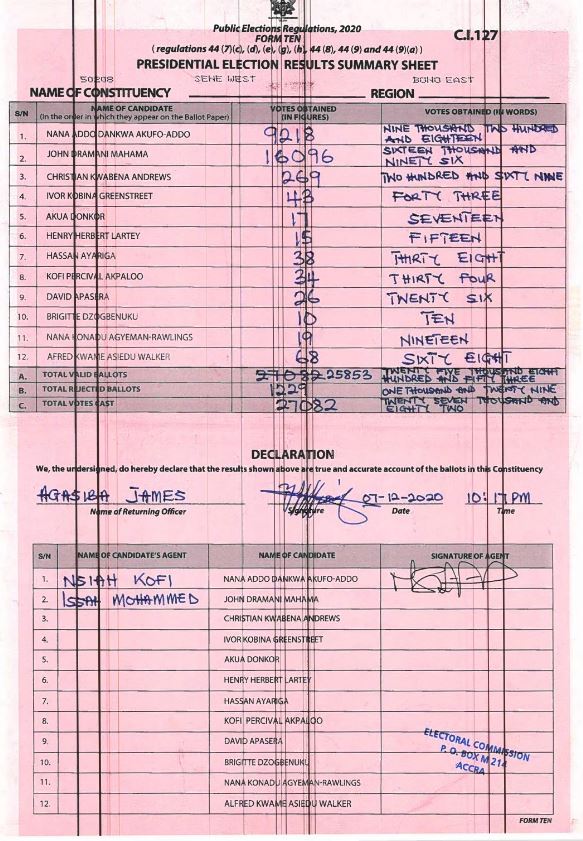 Public Elections Regulations, 2020
FORM TEN
C.I.127
( regulations 44 (7)(c), (d), (e), (g), (h), 44 (8), 44 (9) and 44 (9)(a) )
PRESIDENTIAL ELECTION RESULTS SUMMARY SHEET
50208 SENE WEST BONO EAST
NAME OF CONSTITUENCY REGION
S/N NAME OF CANDIDATE (In the order in which they appear on the Ballot Paper) VOTES OBTAINED (IN FIGURES) VOTES OBTAINED (IN WORDS)
1. NANA ADDO DANKWA AKUFO-ADDO 9218 NINE THOUSAND TWO HUNDRED AND EIGHTEEN
2. JOHN DRAMANI MAHAMA 16096 SIXTEEN THOUSAND AND NINETY SIX
3. CHRISTIAN KWABENA ANDREWS 269 TWO HUNDRED AND SIXTY NINE
4. IVOR KOBINA GREENSTREET 43 FORTY THREE
5. AKUA DONKOR 17 SEVENTEEN
6. HENRY HERBERT LARTEY 15 FIFTEEN
7. HASSAN AYARIGA 38 THIRTY EIGHT
8. KOFI PERCIVAL AKPALOO 34 THIRTY FOUR
9. DAVID APASERA 26 TWENTY SIX
10. BRIGITTE DZOGBENUKU 10 TEN
11. NANA KONADU AGYEMAN-RAWLINGS 19 NINETEEN
12. AFRED KWAME ASIEDU WALKER 68 SIXTY EIGHT
A. TOTAL VALID BALLOTS 27082 25853 TWENTY FIVE THOUSAND EIGHT HUNDRED AND FIFTY THREE
B. TOTAL REJECTED BALLOTS 1229 ONE THOUSAND AND TWENTY NINE
C. TOTAL VOTES CAST 27082 TWENTY SEVEN THOUSAND AND EIGHTY TWO
DECLARATION
We, the undersigned, do hereby declare that the results shown above are true and accurate account of the ballots in this Constituency
AGASIBA JAMES 07-12-2020 10:17PM
Name of Returning Officer Signature Date Time
S/N NAME OF CANDIDATE'S AGENT NAME OF CANDIDATE SIGNATURE OF AGENT
1. NSIAH KOFI NANA ADDO DANKWA AKUFO-ADDO
2. ISSAH MOHAMMED JOHN DRAMANI MAHAMA
3. CHRISTIAN KWABENA ANDREWS
4. IVOR KOBINA GREENSTREET
5. AKUA DONKOR
6. HENRY HERBERT LARTEY
7. HASSAN AYARIGA
8. KOFI PERCIVAL AKPALOO
9. DAVID APASERA
10. BRIGITTE DZOGBENUKU
11. NANA KONADU AGYEMAN-RAWLINGS
12. ALFRED KWAME ASIEDU WALKER
ELECTORAL COMMISSION
P. O. BOX M 214
ACCRA
FORM TEN